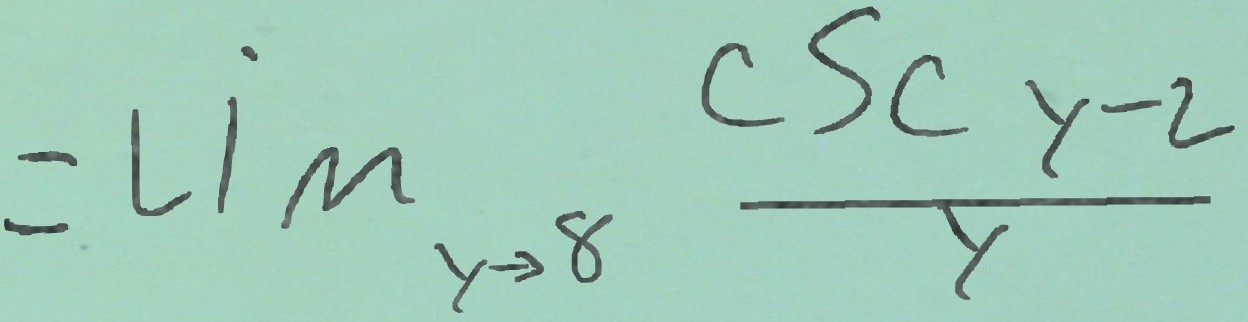 = lim_{y \to 8} \frac{\csc y - 2}{y}